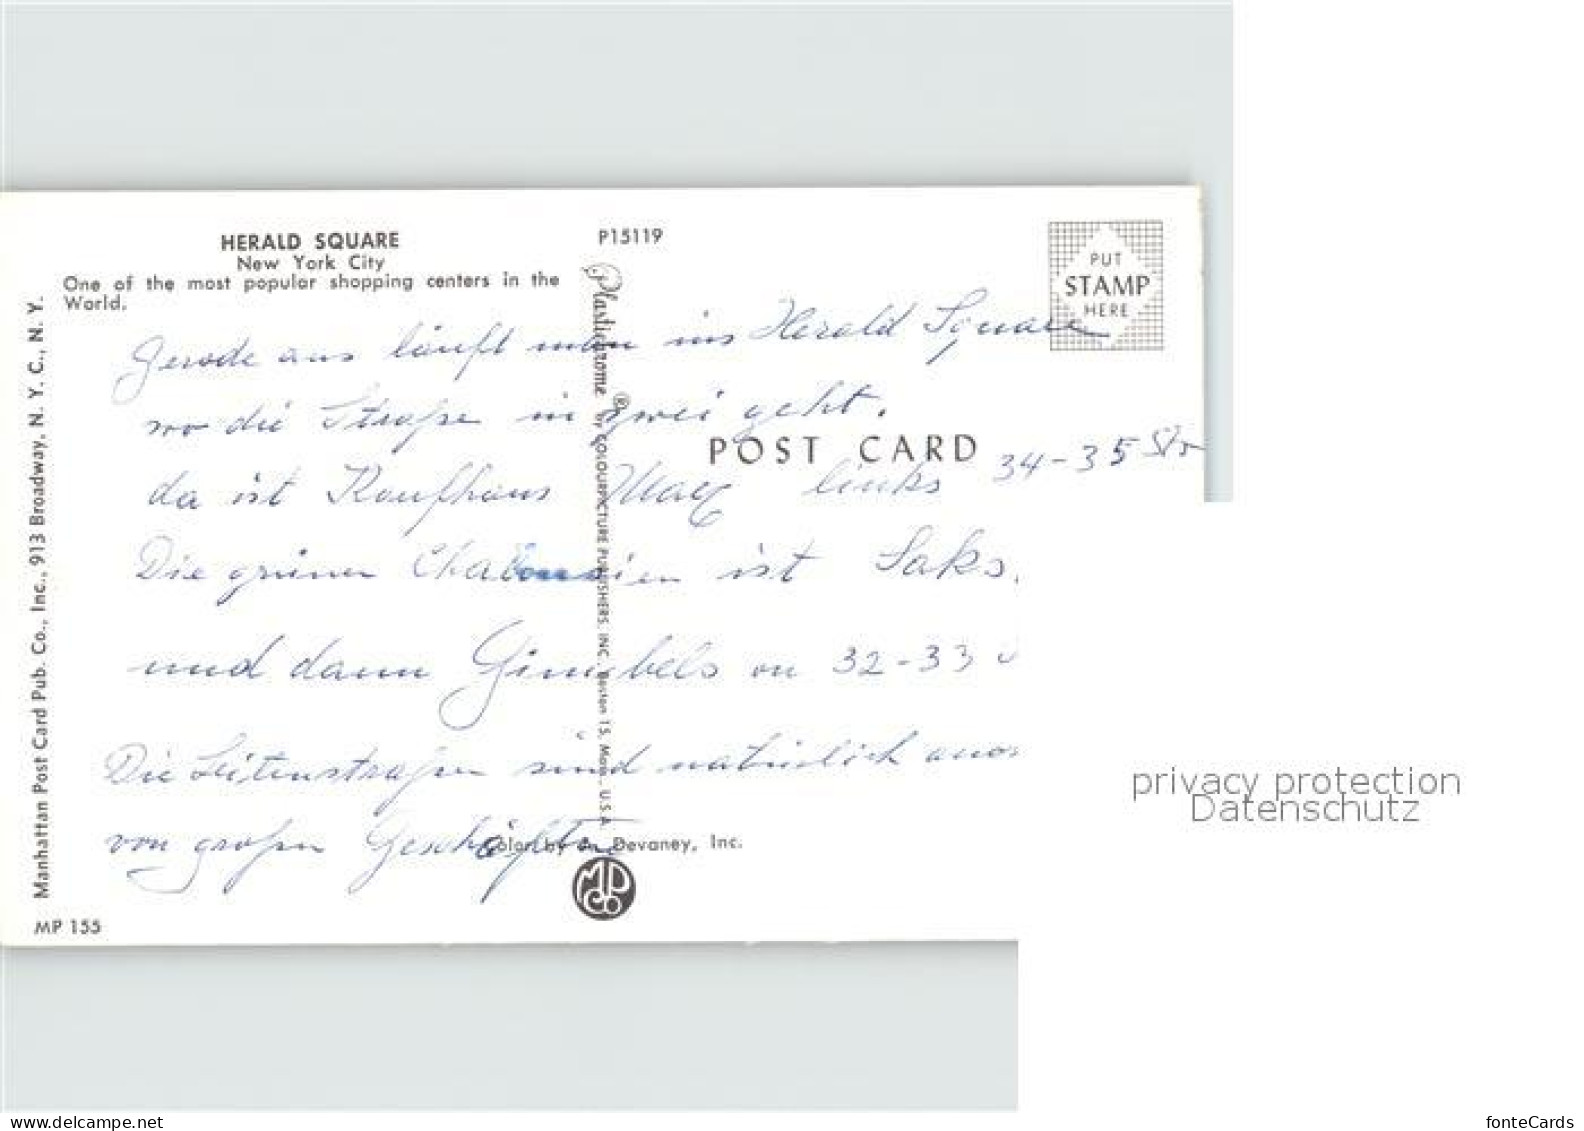 HERALD SQUARE
New York City
One of the most popular shopping centers in the
World.
P15119
PUT
STAMP
HERE
Gerade aus läuft man ins Herald Square
wo die Straße in zwei geht.
POST CARD
da ist Kaufhaus links 34-35 Str
Die grünen ist Saks.
und dann Gimbels on 32-33
Die Seitenstraßen sind natürlich
von großen Geschäften
Plastichrome ® by COLOURPICTURE PUBLISHERS, INC., Boston 15, Mass., U.S.A.
Color by A. Devaney, Inc.
MPCo
Manhattan Post Card Pub. Co., Inc., 913 Broadway, N. Y. C., N. Y.
MP 155
privacy protection
Datenschutz
www.delcampe.net
fonteCards